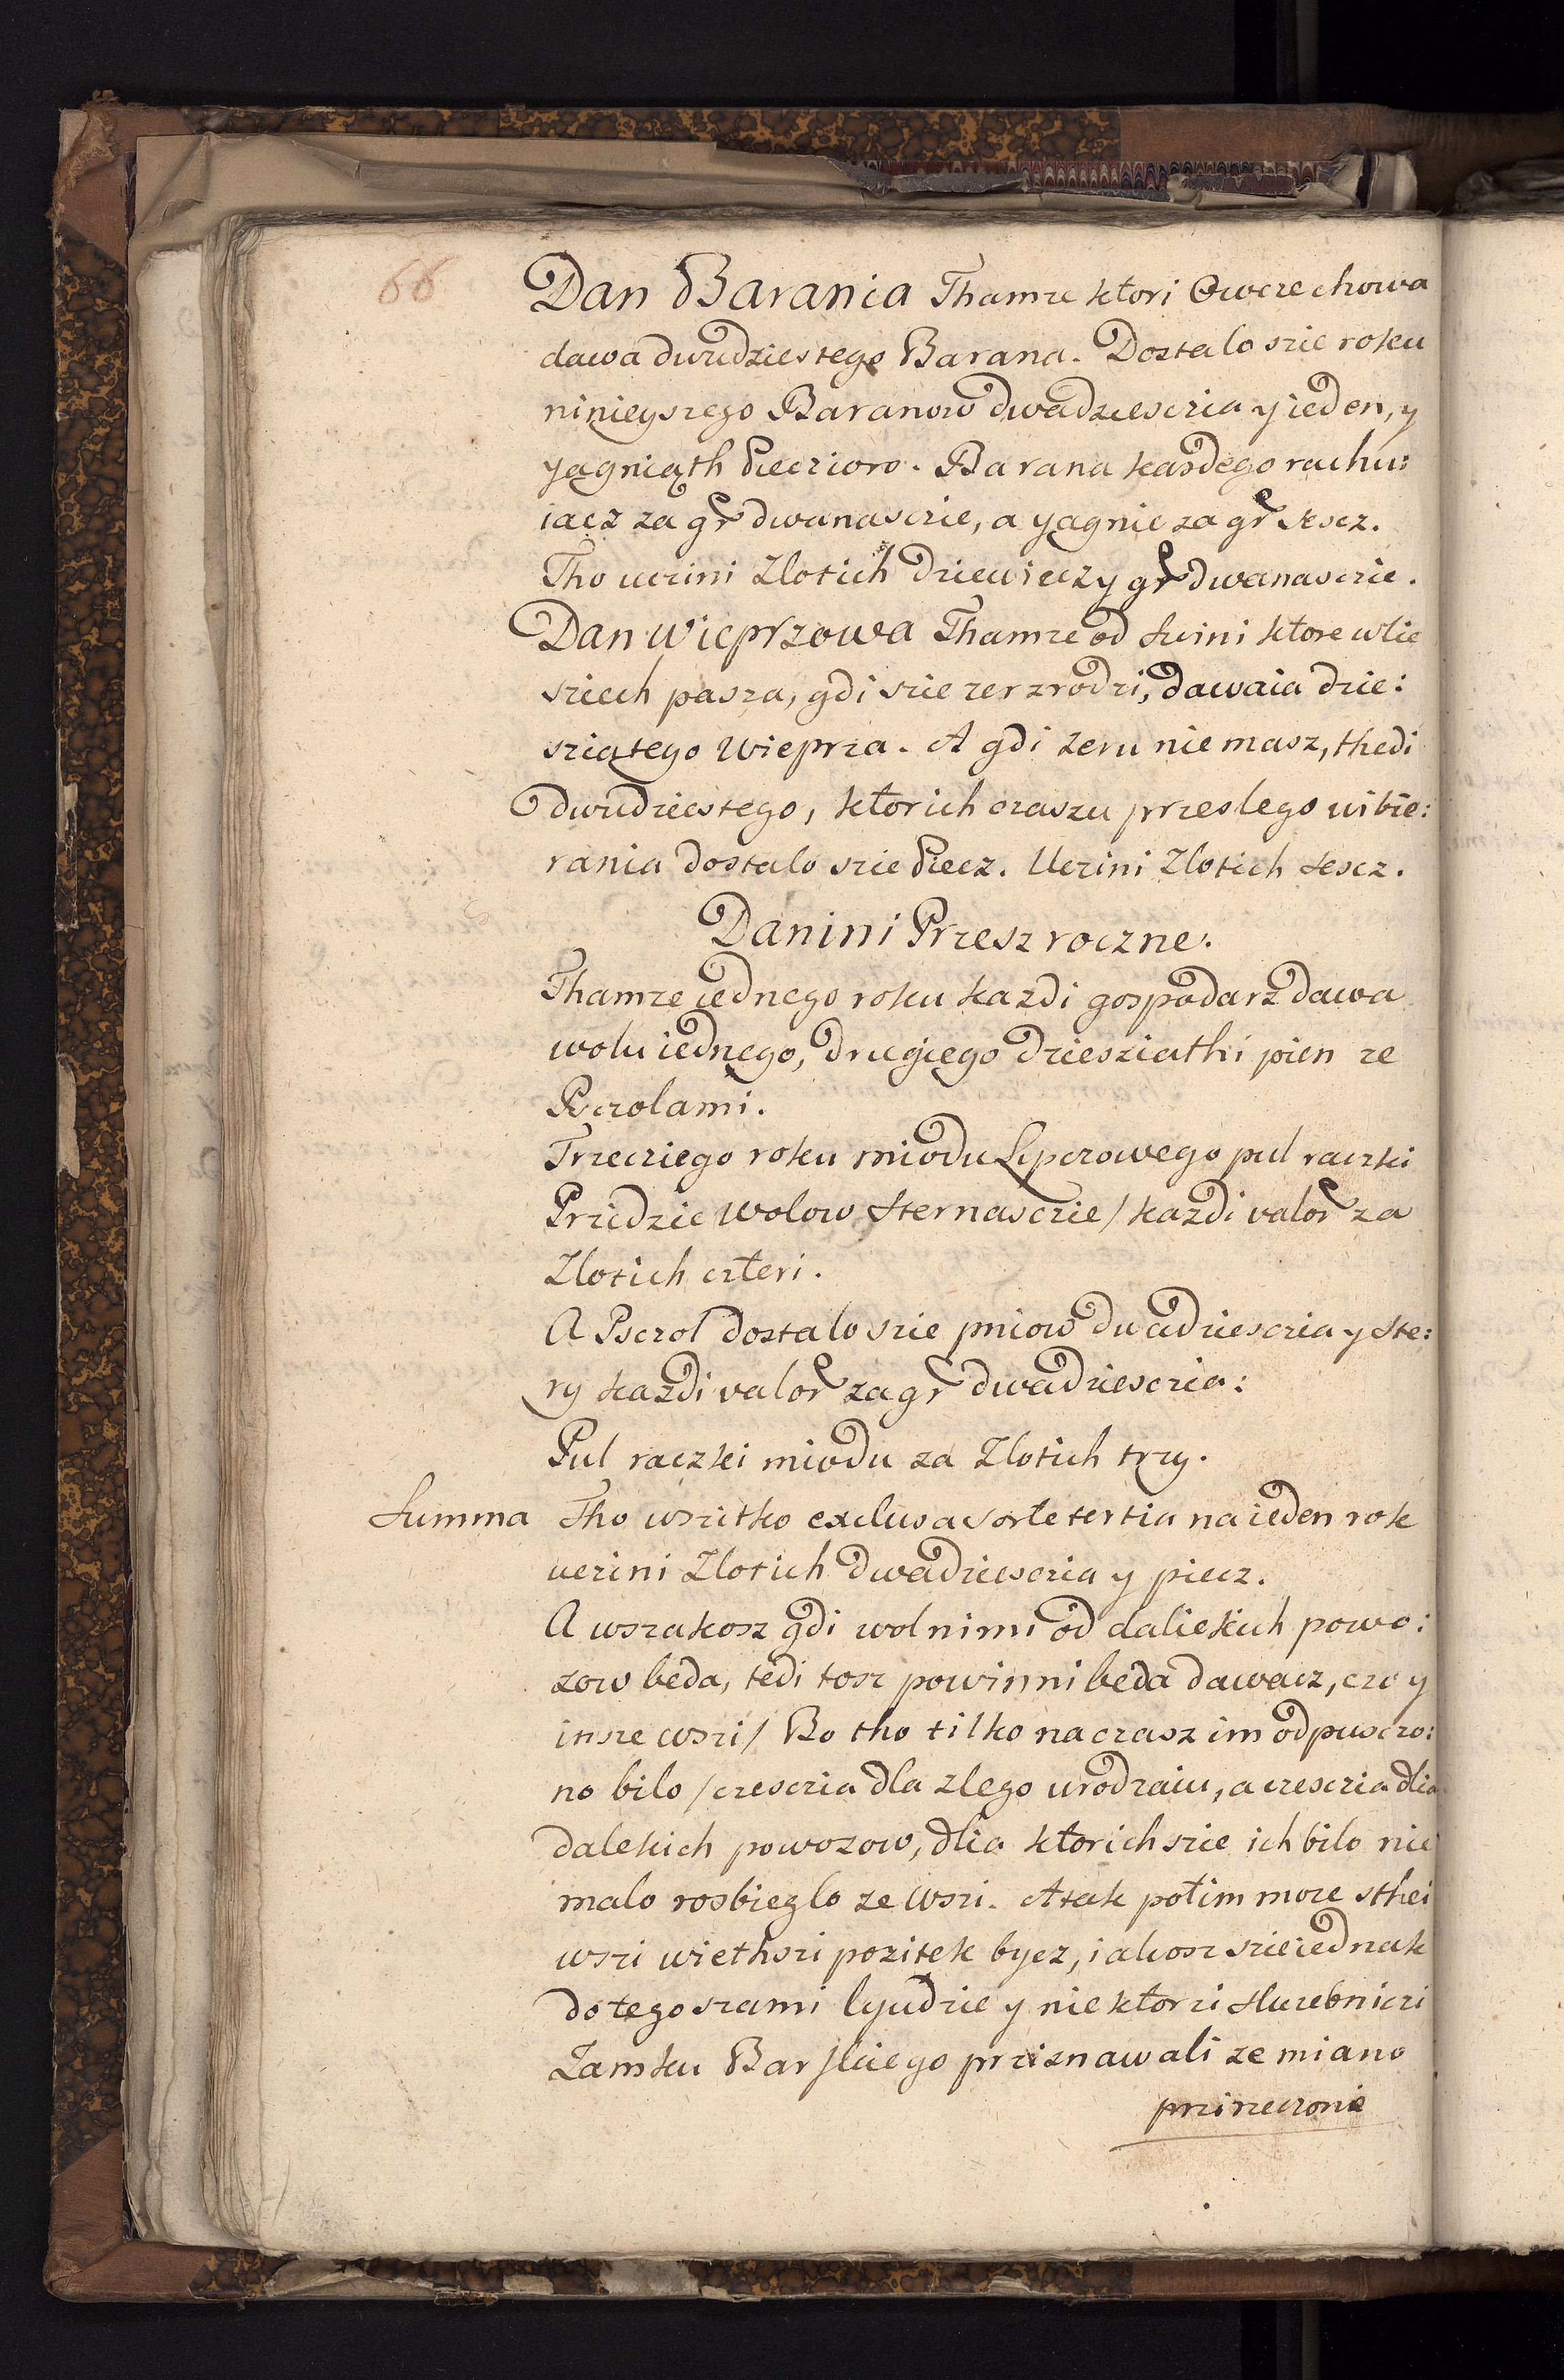 66
Dan Barania Thamze ktori Owcze chowa
dawa dwudziestego Barana. Dostalo szie roku
ninieyszego Baranow dwadziesczia y ieden, y
yagniąth Piecзioro. Barana kasdego rachu:
iacz za gr dwanasczie, a yagnie za gr szescz.
Tho uczini Zlotich dziewiecz y gr dwanasczie.
Dan Wieprzowa Thamze od swini ktore w lie
sziech pasza, gdi szie zer zrodzi, dawaia dzie:
sziątego Wieprza. A gdi zeru nie masz, thedi
dwudziestego, ktorich czaszu przeslego wibie:
rania dostalo szie Piecz. Uczini Zlotich szescz.
Danini Przesz roczne.
Thamze iednego roku kazdi gospodarz dawa
wolu iednego, drugiego dziesziathi pien ze
Psczolami.
Trzecziego roku miodu Lipczowego pul raczki
Przidzie Wolow sternasczie / kazdi valor za
Zlotich czteri.
A Psczol dostalo szie pniow dwadziesczia y szte:
ry kazdi valor za gr dwadziesczia:
Pul raczki miodu za Zlotich trzy.
Summa Tho wszitko exclusa sorte tertia na ieden rok
uczini Zlotich dwadziesczia y piecz.
A wszakosz gdi wolnimi od daliekich powo:
zow beda, tedi tosz powinni beda dawacz, czo y
insze wszi / Bo tho tilko na czasz im odpusczo:
no bilo / czesczia dla zlego urodzaiu, a czesczia dlia
dalekich powozow, dlia ktorich szie ich bilo nie
malo rosbieglo ze wszi. A tak potim moze sthei
wszi wiethszi pozitek bycz, iakosz szie iednak
do tego szami lyudzie y niektorzi sluzebniczi
Zamku Barskiego priznawali ze miano
przirzeczonie